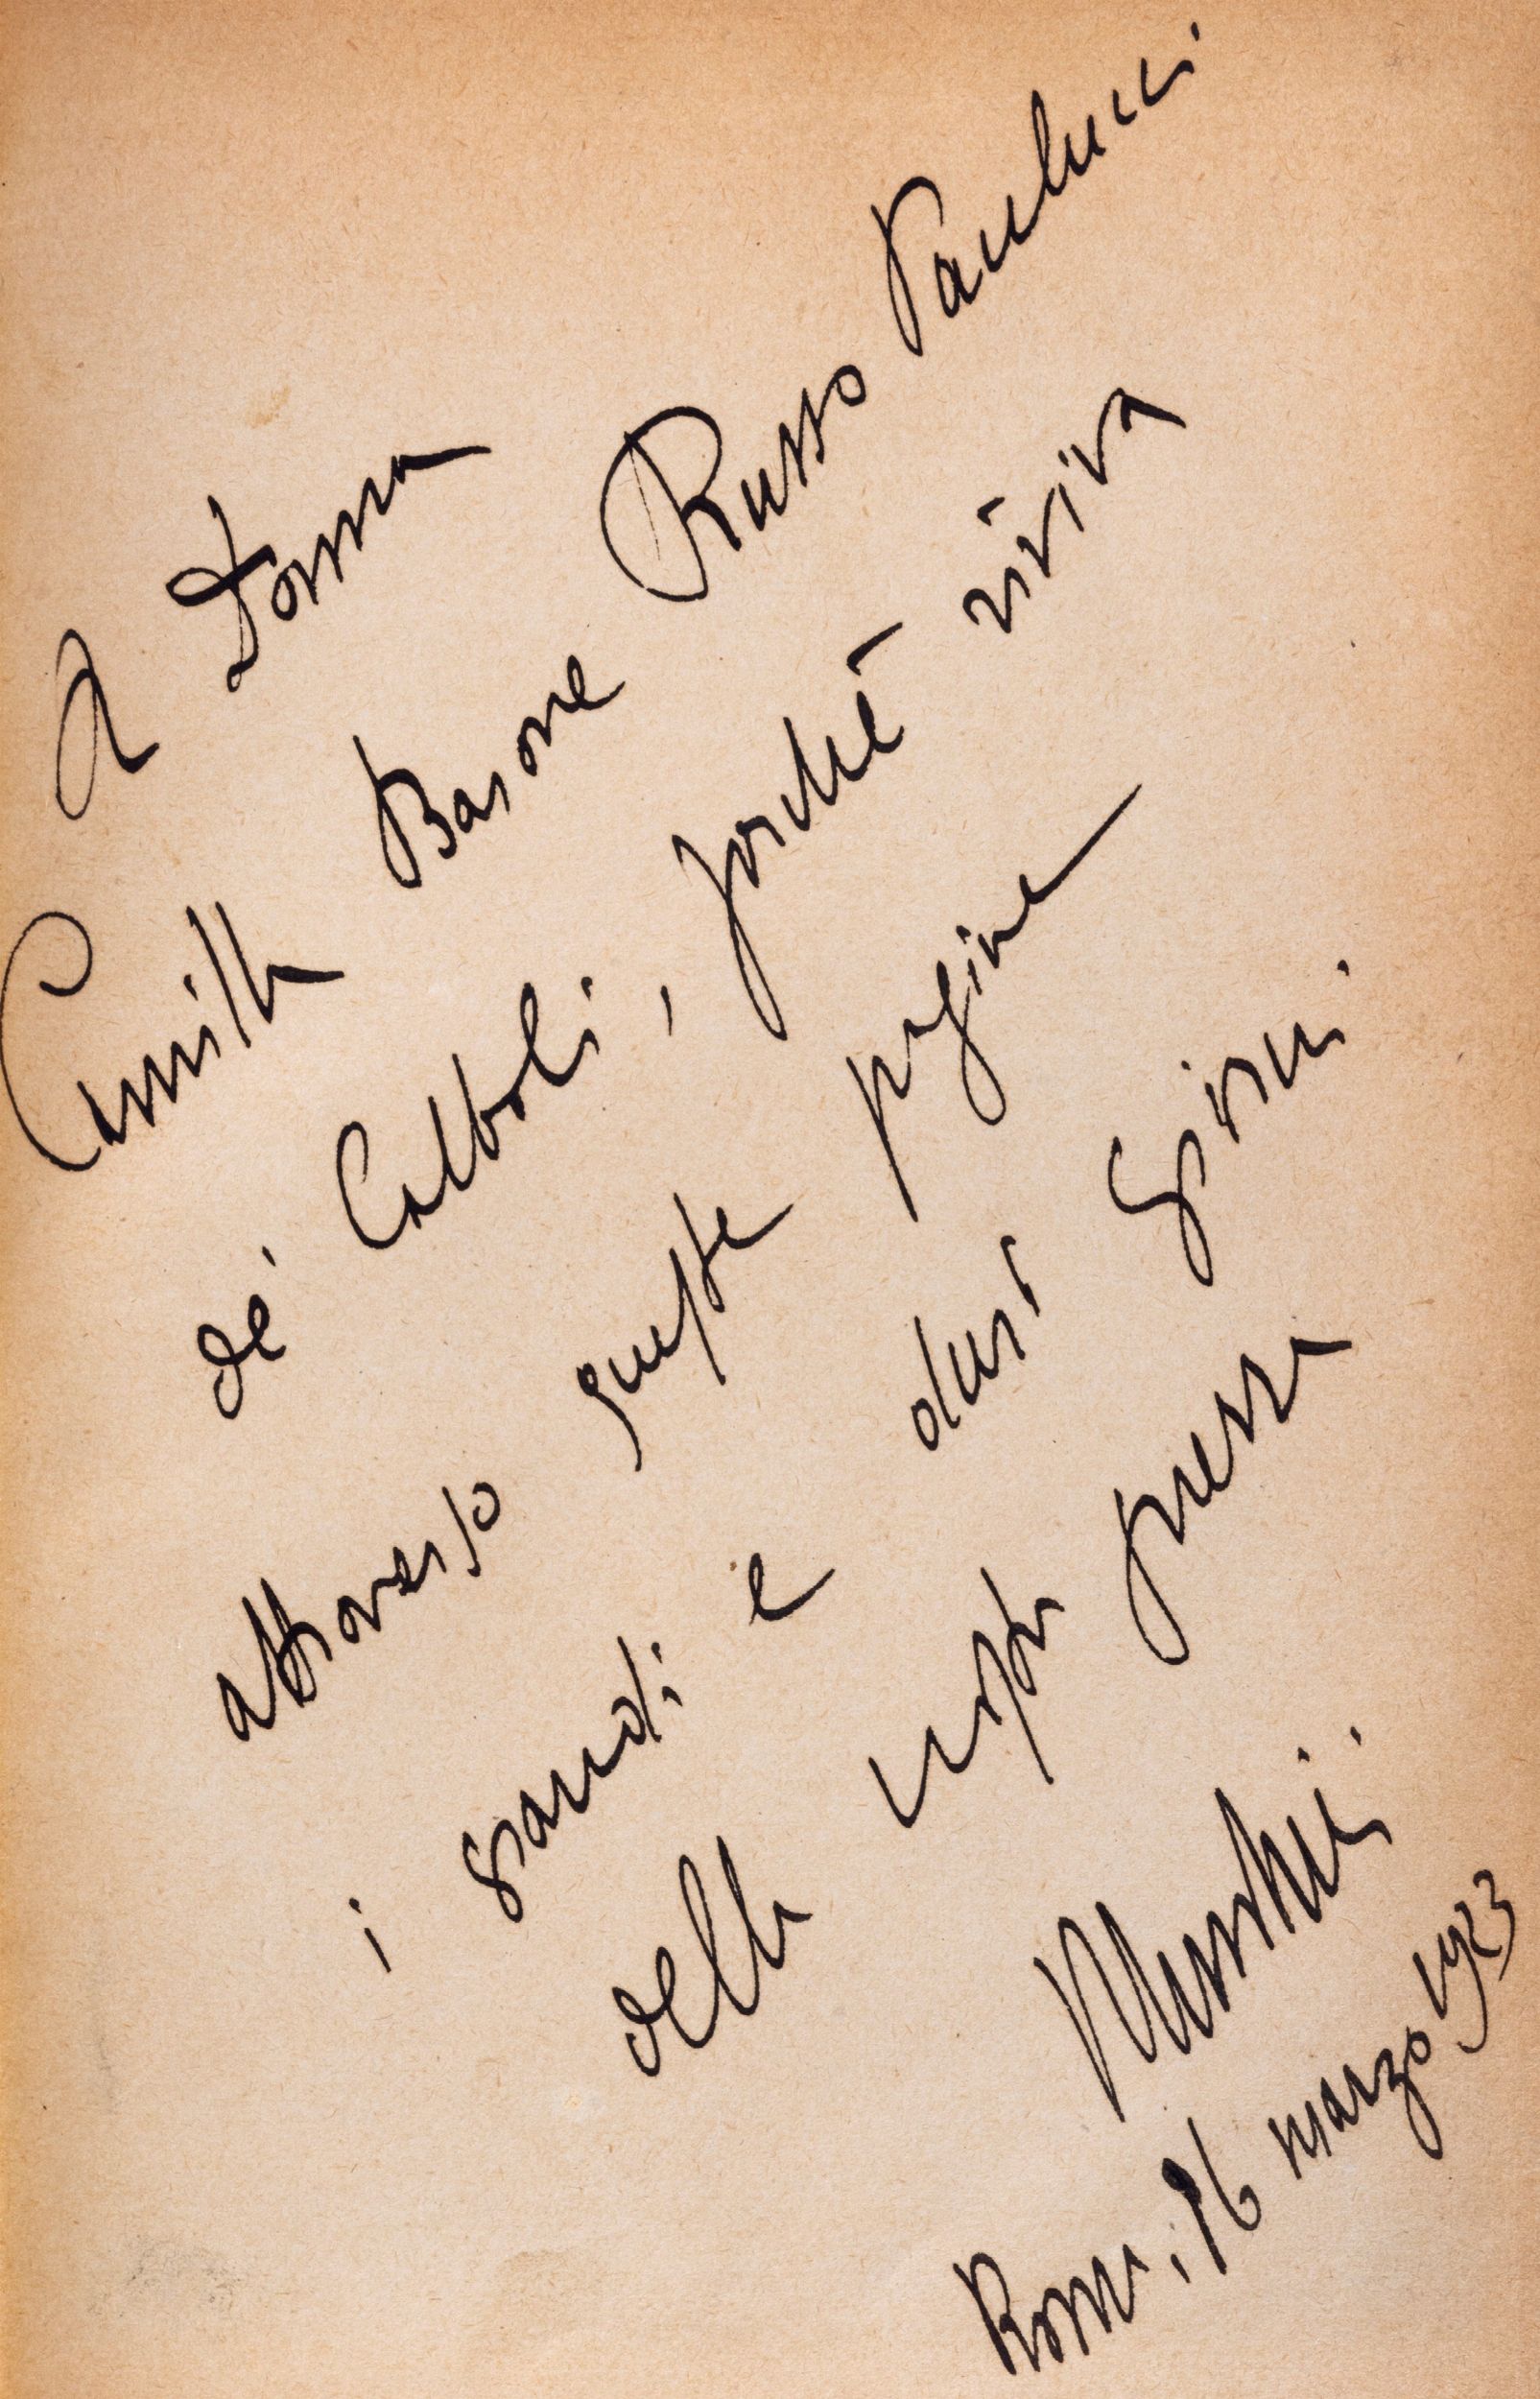 A Donna
Camilla Barone Russo Paulucci
de' Calboli, perché riviva
attraverso queste pagine
i grandi e duri giorni
della nostra guerra
Mussolini
Roma, 16 marzo 1923